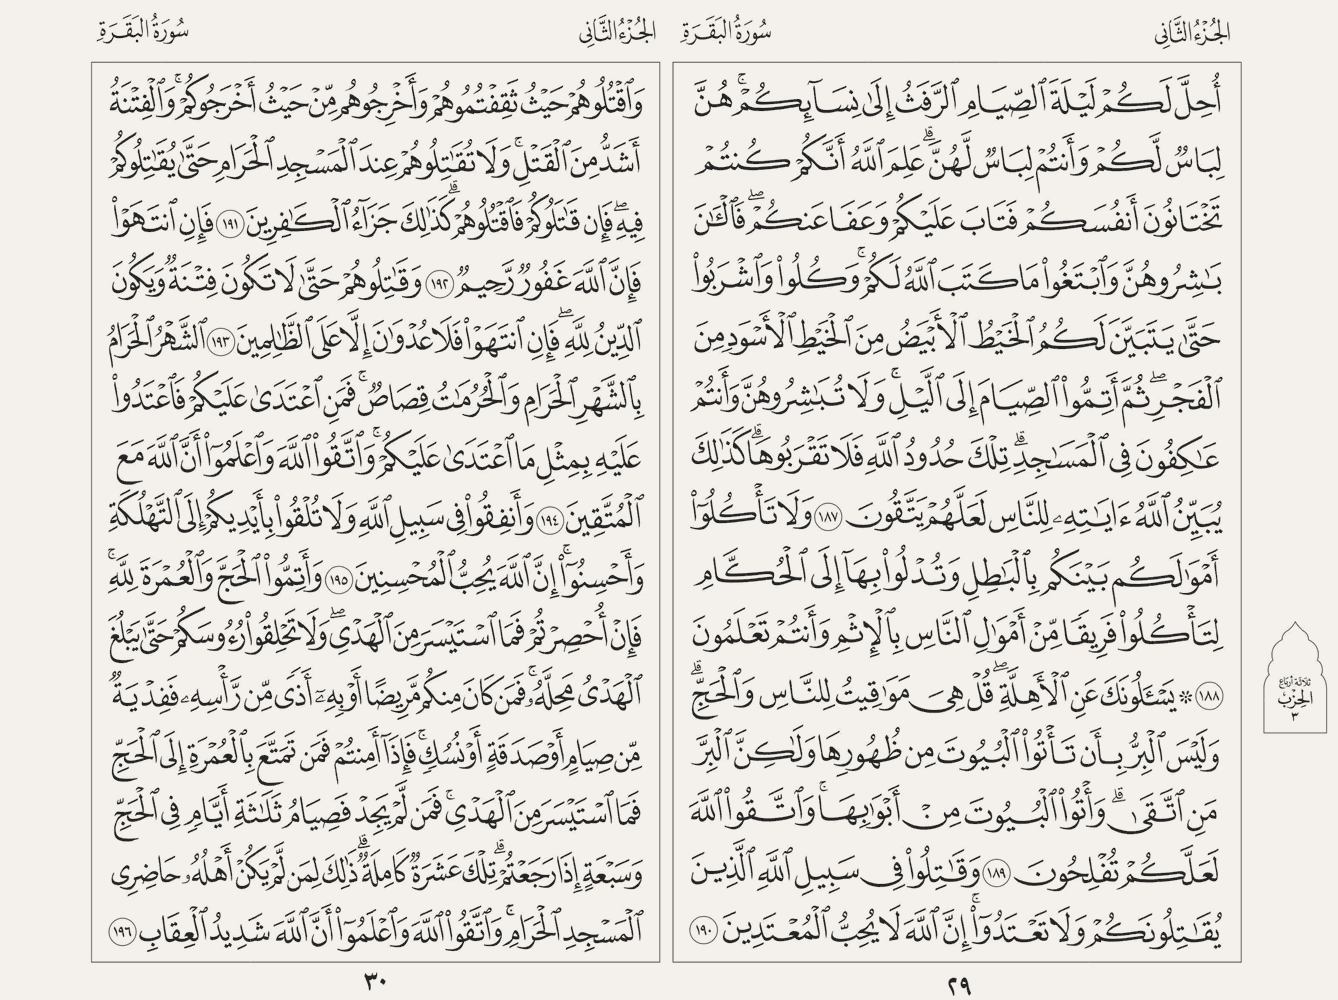 الجُزْءُ الثَّانِي
سُورَةُ البَقَرَةِ
أُحِلَّ لَكُمۡ لَيۡلَةَ ٱلصِّيَامِ ٱلرَّفَثُ إِلَىٰ نِسَآئِكُمۡۚ هُنَّ
لِبَاسٞ لَّكُمۡ وَأَنتُمۡ لِبَاسٞ لَّهُنَّۗ عَلِمَ ٱللَّهُ أَنَّكُمۡ كُنتُمۡ
تَخۡتَانُونَ أَنفُسَكُمۡ فَتَابَ عَلَيۡكُمۡ وَعَفَا عَنكُمۡۖ فَٱلۡـَٰٔنَ
بَٰشِرُوهُنَّ وَٱبۡتَغُواْ مَا كَتَبَ ٱللَّهُ لَكُمۡۚ وَكُلُواْ وَٱشۡرَبُواْ
حَتَّىٰ يَتَبَيَّنَ لَكُمُ ٱلۡخَيۡطُ ٱلۡأَبۡيَضُ مِنَ ٱلۡخَيۡطِ ٱلۡأَسۡوَدِ مِنَ
ٱلۡفَجۡرِۖ ثُمَّ أَتِمُّواْ ٱلصِّيَامَ إِلَى ٱلَّيۡلِۚ وَلَا تُبَٰشِرُوهُنَّ وَأَنتُمۡ
عَٰكِفُونَ فِي ٱلۡمَسَٰجِدِۗ تِلۡكَ حُدُودُ ٱللَّهِ فَلَا تَقۡرَبُوهَاۗ كَذَٰلِكَ
يُبَيِّنُ ٱللَّهُ ءَايَٰتِهِۦ لِلنَّاسِ لَعَلَّهُمۡ يَتَّقُونَ ١٨٧ وَلَا تَأۡكُلُوٓاْ
أَمۡوَٰلَكُم بَيۡنَكُم بِٱلۡبَٰطِلِ وَتُدۡلُواْ بِهَآ إِلَى ٱلۡحُكَّامِ
لِتَأۡكُلُواْ فَرِيقٗا مِّنۡ أَمۡوَٰلِ ٱلنَّاسِ بِٱلۡإِثۡمِ وَأَنتُمۡ تَعۡلَمُونَ
١٨٨ ۞ يَسۡـَٔلُونَكَ عَنِ ٱلۡأَهِلَّةِۖ قُلۡ هِيَ مَوَٰقِيتُ لِلنَّاسِ وَٱلۡحَجِّۗ
وَلَيۡسَ ٱلۡبِرُّ بِأَن تَأۡتُواْ ٱلۡبُيُوتَ مِن ظُهُورِهَا وَلَٰكِنَّ ٱلۡبِرَّ
مَنِ ٱتَّقَىٰۗ وَأۡتُواْ ٱلۡبُيُوتَ مِنۡ أَبۡوَٰبِهَاۚ وَٱتَّقُواْ ٱللَّهَ
لَعَلَّكُمۡ تُفۡلِحُونَ ١٨٩ وَقَٰتِلُواْ فِي سَبِيلِ ٱللَّهِ ٱلَّذِينَ
يُقَٰتِلُونَكُمۡ وَلَا تَعۡتَدُوٓاْۚ إِنَّ ٱللَّهَ لَا يُحِبُّ ٱلۡمُعۡتَدِينَ ١٩٠
ثلاثة أرباع
الحِزْب
٣
٢٩
الجُزْءُ الثَّانِي
سُورَةُ البَقَرَةِ
وَٱقۡتُلُوهُمۡ حَيۡثُ ثَقِفۡتُمُوهُمۡ وَأَخۡرِجُوهُم مِّنۡ حَيۡثُ أَخۡرَجُوكُمۡۚ وَٱلۡفِتۡنَةُ
أَشَدُّ مِنَ ٱلۡقَتۡلِۚ وَلَا تُقَٰتِلُوهُمۡ عِندَ ٱلۡمَسۡجِدِ ٱلۡحَرَامِ حَتَّىٰ يُقَٰتِلُوكُمۡ
فِيهِۖ فَإِن قَٰتَلُوكُمۡ فَٱقۡتُلُوهُمۡۗ كَذَٰلِكَ جَزَآءُ ٱلۡكَٰفِرِينَ ١٩١ فَإِنِ ٱنتَهَوۡاْ
فَإِنَّ ٱللَّهَ غَفُورٞ رَّحِيمٞ ١٩٢ وَقَٰتِلُوهُمۡ حَتَّىٰ لَا تَكُونَ فِتۡنَةٞ وَيَكُونَ
ٱلدِّينُ لِلَّهِۖ فَإِنِ ٱنتَهَوۡاْ فَلَا عُدۡوَٰنَ إِلَّا عَلَى ٱلظَّٰلِمِينَ ١٩٣ ٱلشَّهۡرُ ٱلۡحَرَامُ
بِٱلشَّهۡرِ ٱلۡحَرَامِ وَٱلۡحُرُمَٰتُ قِصَاصٞۚ فَمَنِ ٱعۡتَدَىٰ عَلَيۡكُمۡ فَٱعۡتَدُواْ
عَلَيۡهِ بِمِثۡلِ مَا ٱعۡتَدَىٰ عَلَيۡكُمۡۚ وَٱتَّقُواْ ٱللَّهَ وَٱعۡلَمُوٓاْ أَنَّ ٱللَّهَ مَعَ
ٱلۡمُتَّقِينَ ١٩٤ وَأَنفِقُواْ فِي سَبِيلِ ٱللَّهِ وَلَا تُلۡقُواْ بِأَيۡدِيكُمۡ إِلَى ٱلتَّهۡلُكَةِ
وَأَحۡسِنُوٓاْۚ إِنَّ ٱللَّهَ يُحِبُّ ٱلۡمُحۡسِنِينَ ١٩٥ وَأَتِمُّواْ ٱلۡحَجَّ وَٱلۡعُمۡرَةَ لِلَّهِۚ
فَإِنۡ أُحۡصِرۡتُمۡ فَمَا ٱسۡتَيۡسَرَ مِنَ ٱلۡهَدۡيِۖ وَلَا تَحۡلِقُواْ رُءُوسَكُمۡ حَتَّىٰ يَبۡلُغَ
ٱلۡهَدۡيُ مَحِلَّهُۥۚ فَمَن كَانَ مِنكُم مَّرِيضًا أَوۡ بِهِۦٓ أَذٗى مِّن رَّأۡسِهِۦ فَفِدۡيَةٞ
مِّن صِيَامٍ أَوۡ صَدَقَةٍ أَوۡ نُسُكٖۚ فَإِذَآ أَمِنتُمۡ فَمَن تَمَتَّعَ بِٱلۡعُمۡرَةِ إِلَى ٱلۡحَجِّ
فَمَا ٱسۡتَيۡسَرَ مِنَ ٱلۡهَدۡيِۚ فَمَن لَّمۡ يَجِدۡ فَصِيَامُ ثَلَٰثَةِ أَيَّامٖ فِي ٱلۡحَجِّ
وَسَبۡعَةٍ إِذَا رَجَعۡتُمۡۗ تِلۡكَ عَشَرَةٞ كَامِلَةٞۗ ذَٰلِكَ لِمَن لَّمۡ يَكُنۡ أَهۡلُهُۥ حَاضِرِي
ٱلۡمَسۡجِدِ ٱلۡحَرَامِۚ وَٱتَّقُواْ ٱللَّهَ وَٱعۡلَمُوٓاْ أَنَّ ٱللَّهَ شَدِيدُ ٱلۡعِقَابِ ١٩٦
٣٠